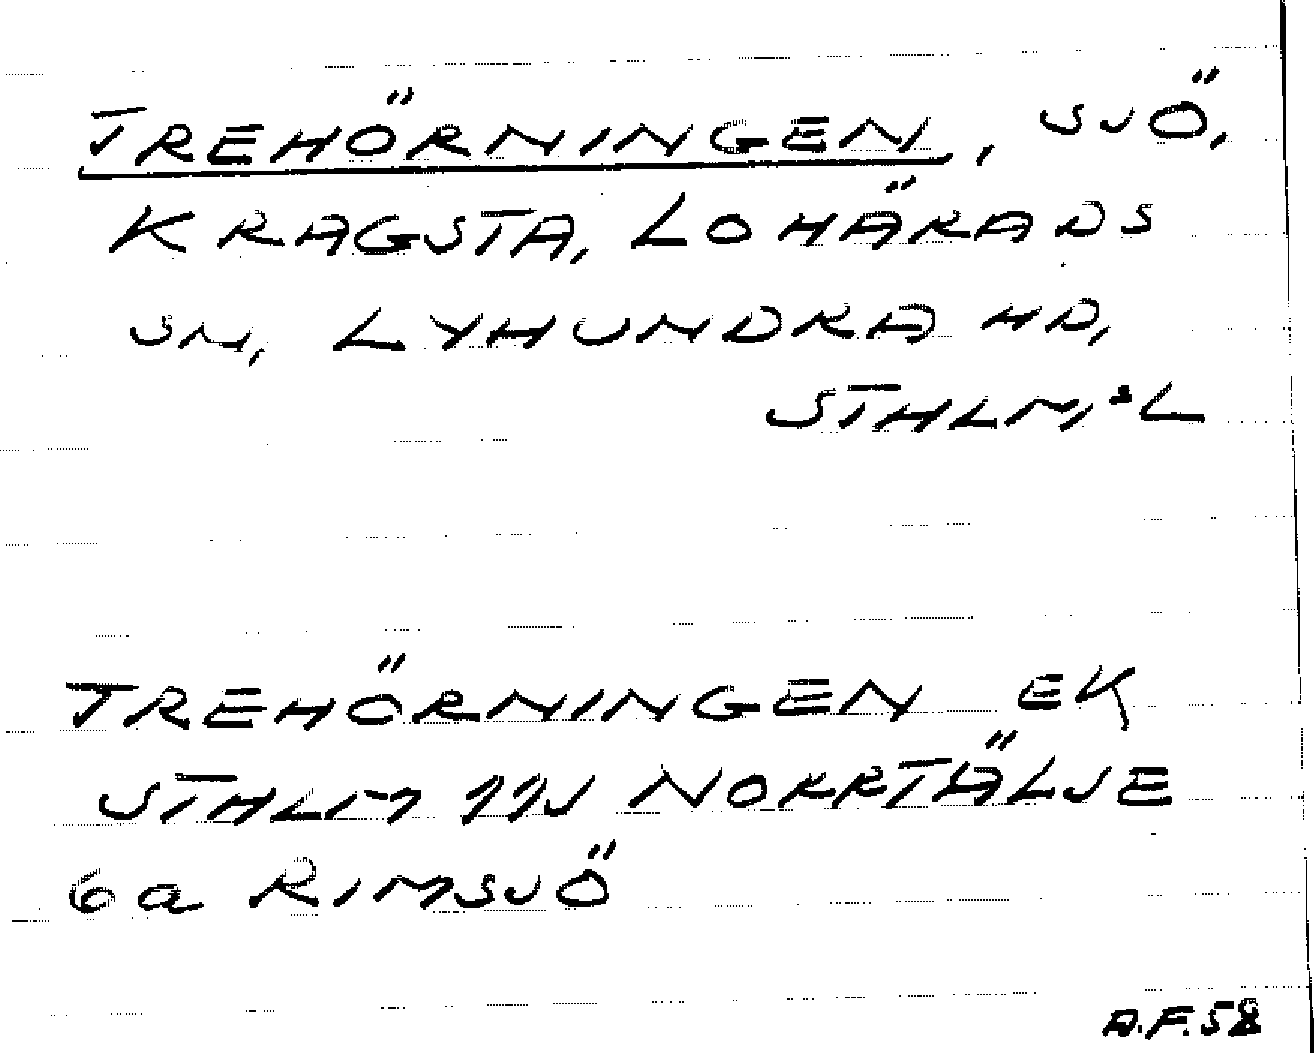 TREHÖRNINGEN, SJÖ,
KRAGSTA, LOHÄRADS
SN, LYHUNDRA HD,
STHLM,S L
TREHÖRNINGEN EK
STHLM 11J NORRTÄLJE
6a RIMSJÖ
A.F.58